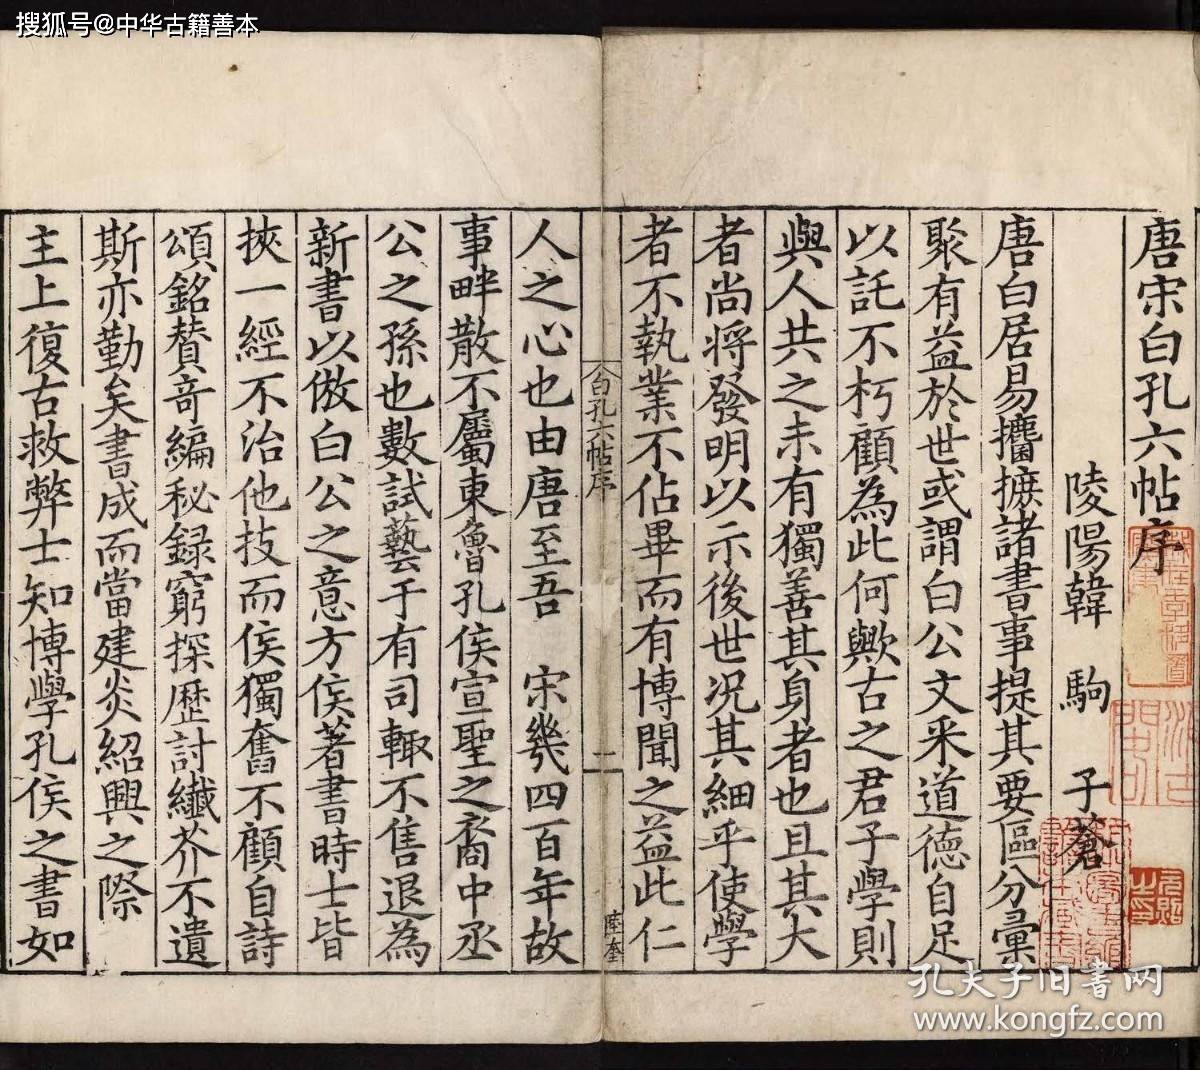 搜狐号@中华古籍善本
唐宋白孔六帖序
陵陽韓　駒　子蒼
唐白居易攟摭諸書事提其要區分彙
聚有益於世或謂白公文采道德自足
以託不朽顧為此何歟古之君子學則
與人共之未有獨善其身者也且其大
者尚將發明以示後世况其細乎使學
者不執業不佔畢而有博聞之益此仁
白孔六帖序
一
陸奎
人之心也由唐至吾　宋幾四百年故
事畔散不屬東魯孔侯宣聖之裔中丞
公之孫也數試藝于有司輙不售退為
新書以倣白公之意方侯著書時士皆
挾一經不治他技而侯獨奮不顧自詩
頌銘贊奇編秘録窮探歷討纖芥不遺
斯亦勤矣書成而當建炎紹興之際
主上復古救弊士知博學孔侯之書如
孔夫子旧书网
www.kongfz.com